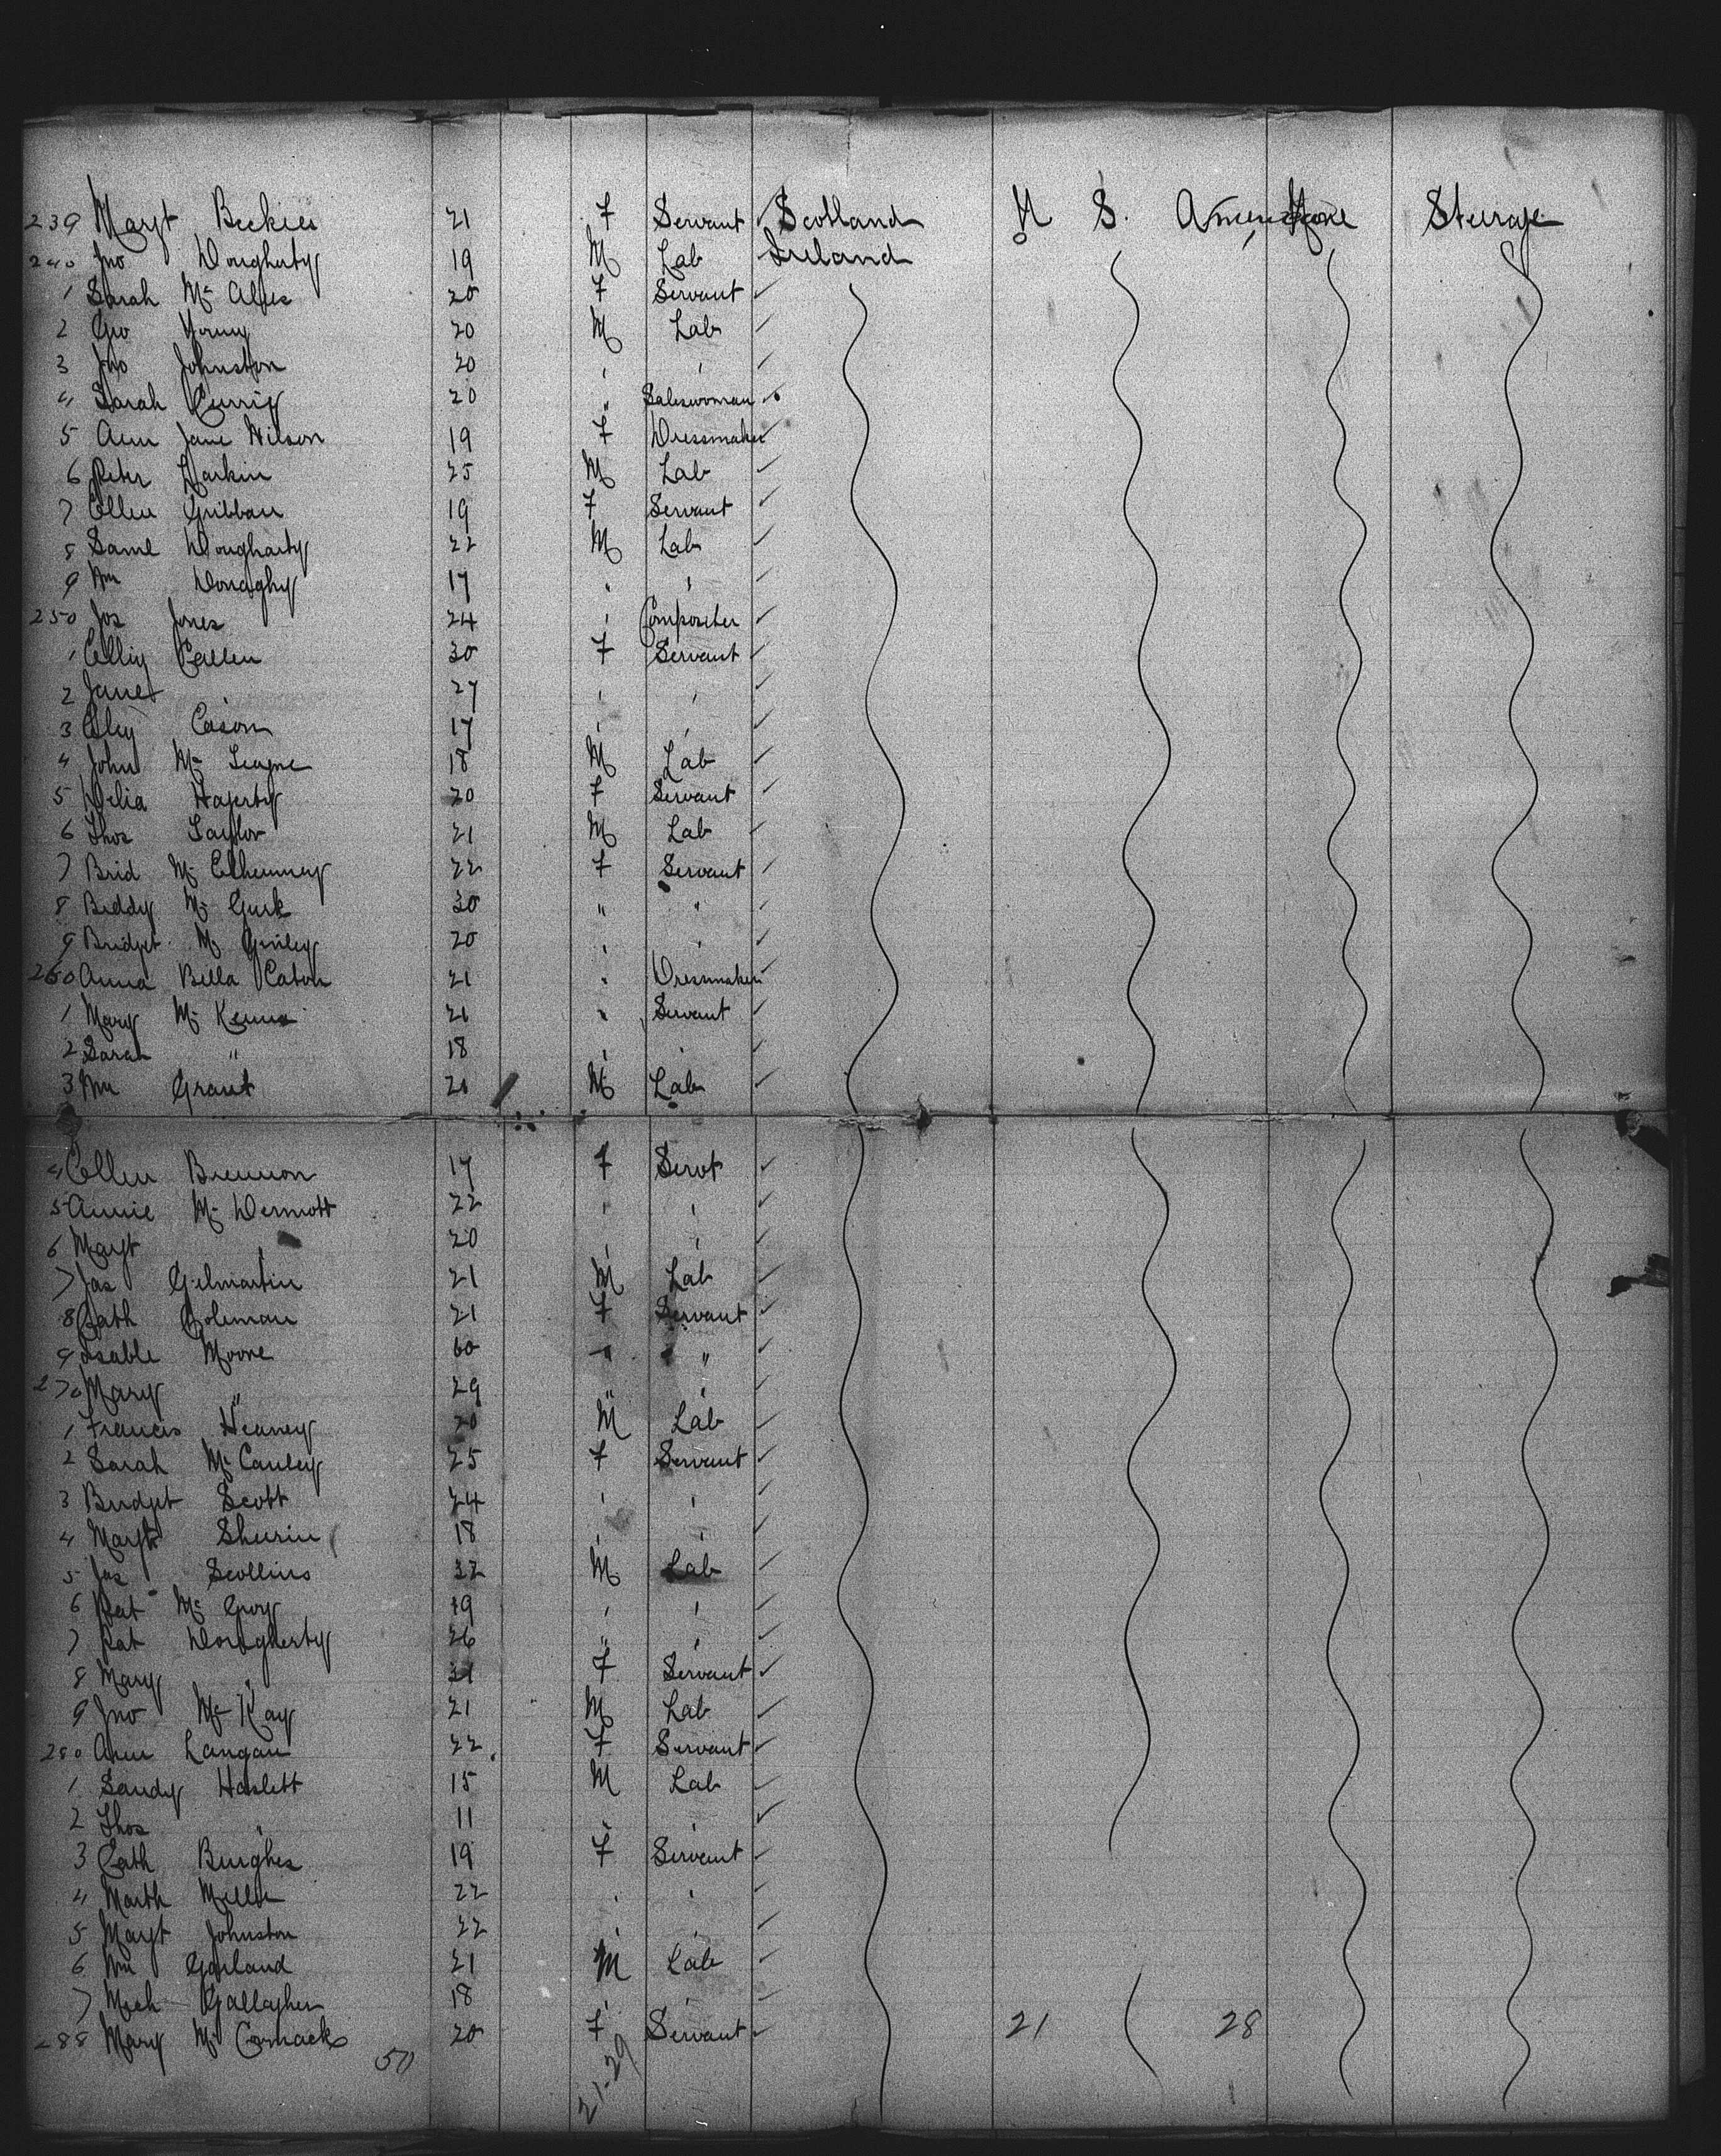 239 Margt Beckies 21 F Servant Scotland U S. America None Steerage
240 Jno Dougherty 19 M Lab Ireland
1 Sarah Mc 20 F Servant
2 Geo Young 20 M Lab
3 Jno Johnston 20 " "
4 Sarah Currie 20 " Saleswoman
5 Ann Jane Wilson 19 F Dressmaker
6 Peter Larkin 25 M Lab
7 Ellen Gribban 19 F Servant
8 Saml Dougharty 22 M Lab
9 Wm Donaghy 17 " "
250 Jos Jones 24 " Compositer
1 Ellen 30 F Servant
2 Janet " 27 " "
3 Eason 17 " "
4 John Mc 18 M Lab
5 Delia Hagerty 20 F Servant
6 Thos Taylor 21 M Lab
7 Brid Mc Elhenney 22 F Servant
8 Biddy Mc Gurk 30 " "
9 Bridget Mc 20 " "
260 Anna Bella Caton 21 " Dressmaker
1 Mary Mc Kenna 21 " Servant
2 Sarah " 18 " "
3 Wm Grant 21 M Lab
4 Ellen Brennon 17 F Servt
5 Annie Mc Dermott 22 " "
6 Margt " 20 " "
7 Jas Gilmartin 21 M Lab
8 Cath Coleman 21 F Servant
9 Isable Moore 60 " "
270 Mary " 29 " "
1 Francis Heaney 20 M Lab
2 Sarah Mc Cauley 25 F Servant
3 Bridget Scott 24 " "
4 Margt Sherin 18 " "
5 Jas Scollins 32 M Lab
6 Pat Mc Gory 19 " "
7 Pat Dougherty 26 " "
8 Mary " 31 F Servant
9 Jno Mc Kay 21 M Lab
280 Ann Langan 22 F Servant
1 Sandy Haslett 15 M Lab
2 Thos " 11 " "
3 Cath Burghes 19 F Servant
4 Marth Miller 22 " "
5 Margt Johnston 22 " "
6 Wm Garland 21 M Lab
7 Mich Gallagher 18 " "
288 Mary Mc Cormack 20 F Servant 21 28
50 21-29